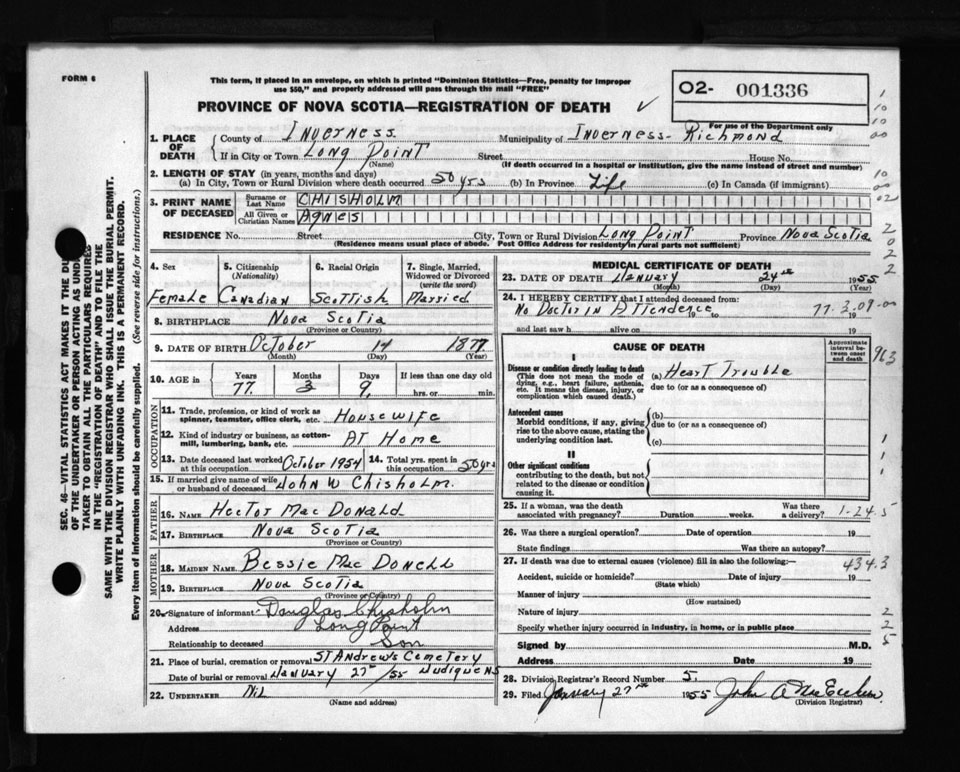 FORM 6
This form, if placed in an envelope, on which is printed "Dominion Statistics—Free, penalty for improper
use $50," and properly addressed will pass through the mail "FREE"
PROVINCE OF NOVA SCOTIA—REGISTRATION OF DEATH
O2- 001336
For use of the Department only
1. PLACE OF DEATH
County of Inverness Municipality of Inverness-Richmond
If in City or Town Long Point Street House No.
(Name) (If death occurred in a hospital or institution, give the name instead of street and number)
2. LENGTH OF STAY (in years, months and days)
(a) In City, Town or Rural Division where death occurred 50 yrs (b) In Province Life (c) In Canada (if immigrant)
3. PRINT NAME OF DECEASED
Surname or Last Name CHISHOLM
All Given or Christian Names Agnes
RESIDENCE No. Street City, Town or Rural Division Long Point Province Nova Scotia
(Residence means usual place of abode. Post Office Address for residents in rural parts not sufficient)
4. Sex 5. Citizenship (Nationality) 6. Racial Origin 7. Single, Married, Widowed or Divorced (write the word)
Female Canadian Scottish Married
8. BIRTHPLACE Nova Scotia
(Province or Country)
9. DATE OF BIRTH October 14 1877
(Month) (Day) (Year)
10. AGE in Years Months Days If less than one day old
77 3 9 hrs. or min.
OCCUPATION
11. Trade, profession, or kind of work as spinner, teamster, office clerk, etc. Housewife
12. Kind of industry or business, as cotton-mill, lumbering, bank, etc. At Home
13. Date deceased last worked at this occupation October 1954 14. Total yrs. spent in this occupation 50 yrs
15. If married give name of wife or husband of deceased John W Chisholm.
FATHER
16. NAME Hector Mac Donald
17. BIRTHPLACE Nova Scotia
(Province or Country)
MOTHER
18. MAIDEN NAME Bessie Mac Donell
19. BIRTHPLACE Nova Scotia
(Province or Country)
20. Signature of informant Douglas Chisholm
Address Long Point
Relationship to deceased Son
21. Place of burial, cremation or removal St Andrews Cemetery
Date of burial or removal January 27th /55 Judiquens
22. UNDERTAKER Nil
(Name and address)
MEDICAL CERTIFICATE OF DEATH
23. DATE OF DEATH January 24th 1955
(Month) (Day)
24. I HEREBY CERTIFY that I attended deceased from:
No Doctor in Attendence 19 to 19
and last saw h alive on 19
CAUSE OF DEATH
Approximate interval between onset and death
I
Disease or condition directly leading to death
(This does not mean the mode of dying, e.g., heart failure, asthenia, etc. It means the disease, injury, or complication which caused death.)
(a) Heart Trouble
due to (or as a consequence of)
Antecedent causes
Morbid conditions, if any, giving rise to the above cause, stating the underlying condition last.
(b)
due to (or as a consequence of)
(c)
II
Other significant conditions
contributing to the death, but not related to the disease or condition causing it.
25. If a woman, was the death associated with pregnancy? Duration weeks. Was there a delivery?
1-24-5
26. Was there a surgical operation? Date of operation 19
State findings Was there an autopsy?
27. If death was due to external causes (violence) fill in also the following:—
434.3
Accident, suicide or homicide? Date of injury 19
(State which)
Manner of injury
(How sustained)
Nature of injury
Specify whether injury occurred in industry, in home, or in public place
Signed by M.D.
Address Date 19
28. Division Registrar's Record Number 5.
29. Filed January 27th 1955 John A
(Division Registrar)
SEC. 46—VITAL STATISTICS ACT MAKES IT THE
OF THE UNDERTAKER OR PERSON ACTING AS
TAKER TO OBTAIN ALL THE PARTICULARS REQUIRED
IN THE "REGISTRATION OF DEATH" AND TO FILE THE
SAME WITH THE DIVISION REGISTRAR WHO SHALL ISSUE THE BURIAL PERMIT.
WRITE PLAINLY WITH UNFADING INK. THIS IS A PERMANENT RECORD.
Every item of information should be carefully supplied. (See reverse side for instructions.)
1
10
10
00
10
00
02
2
0
2
2
963
1
1
1
2
2
5